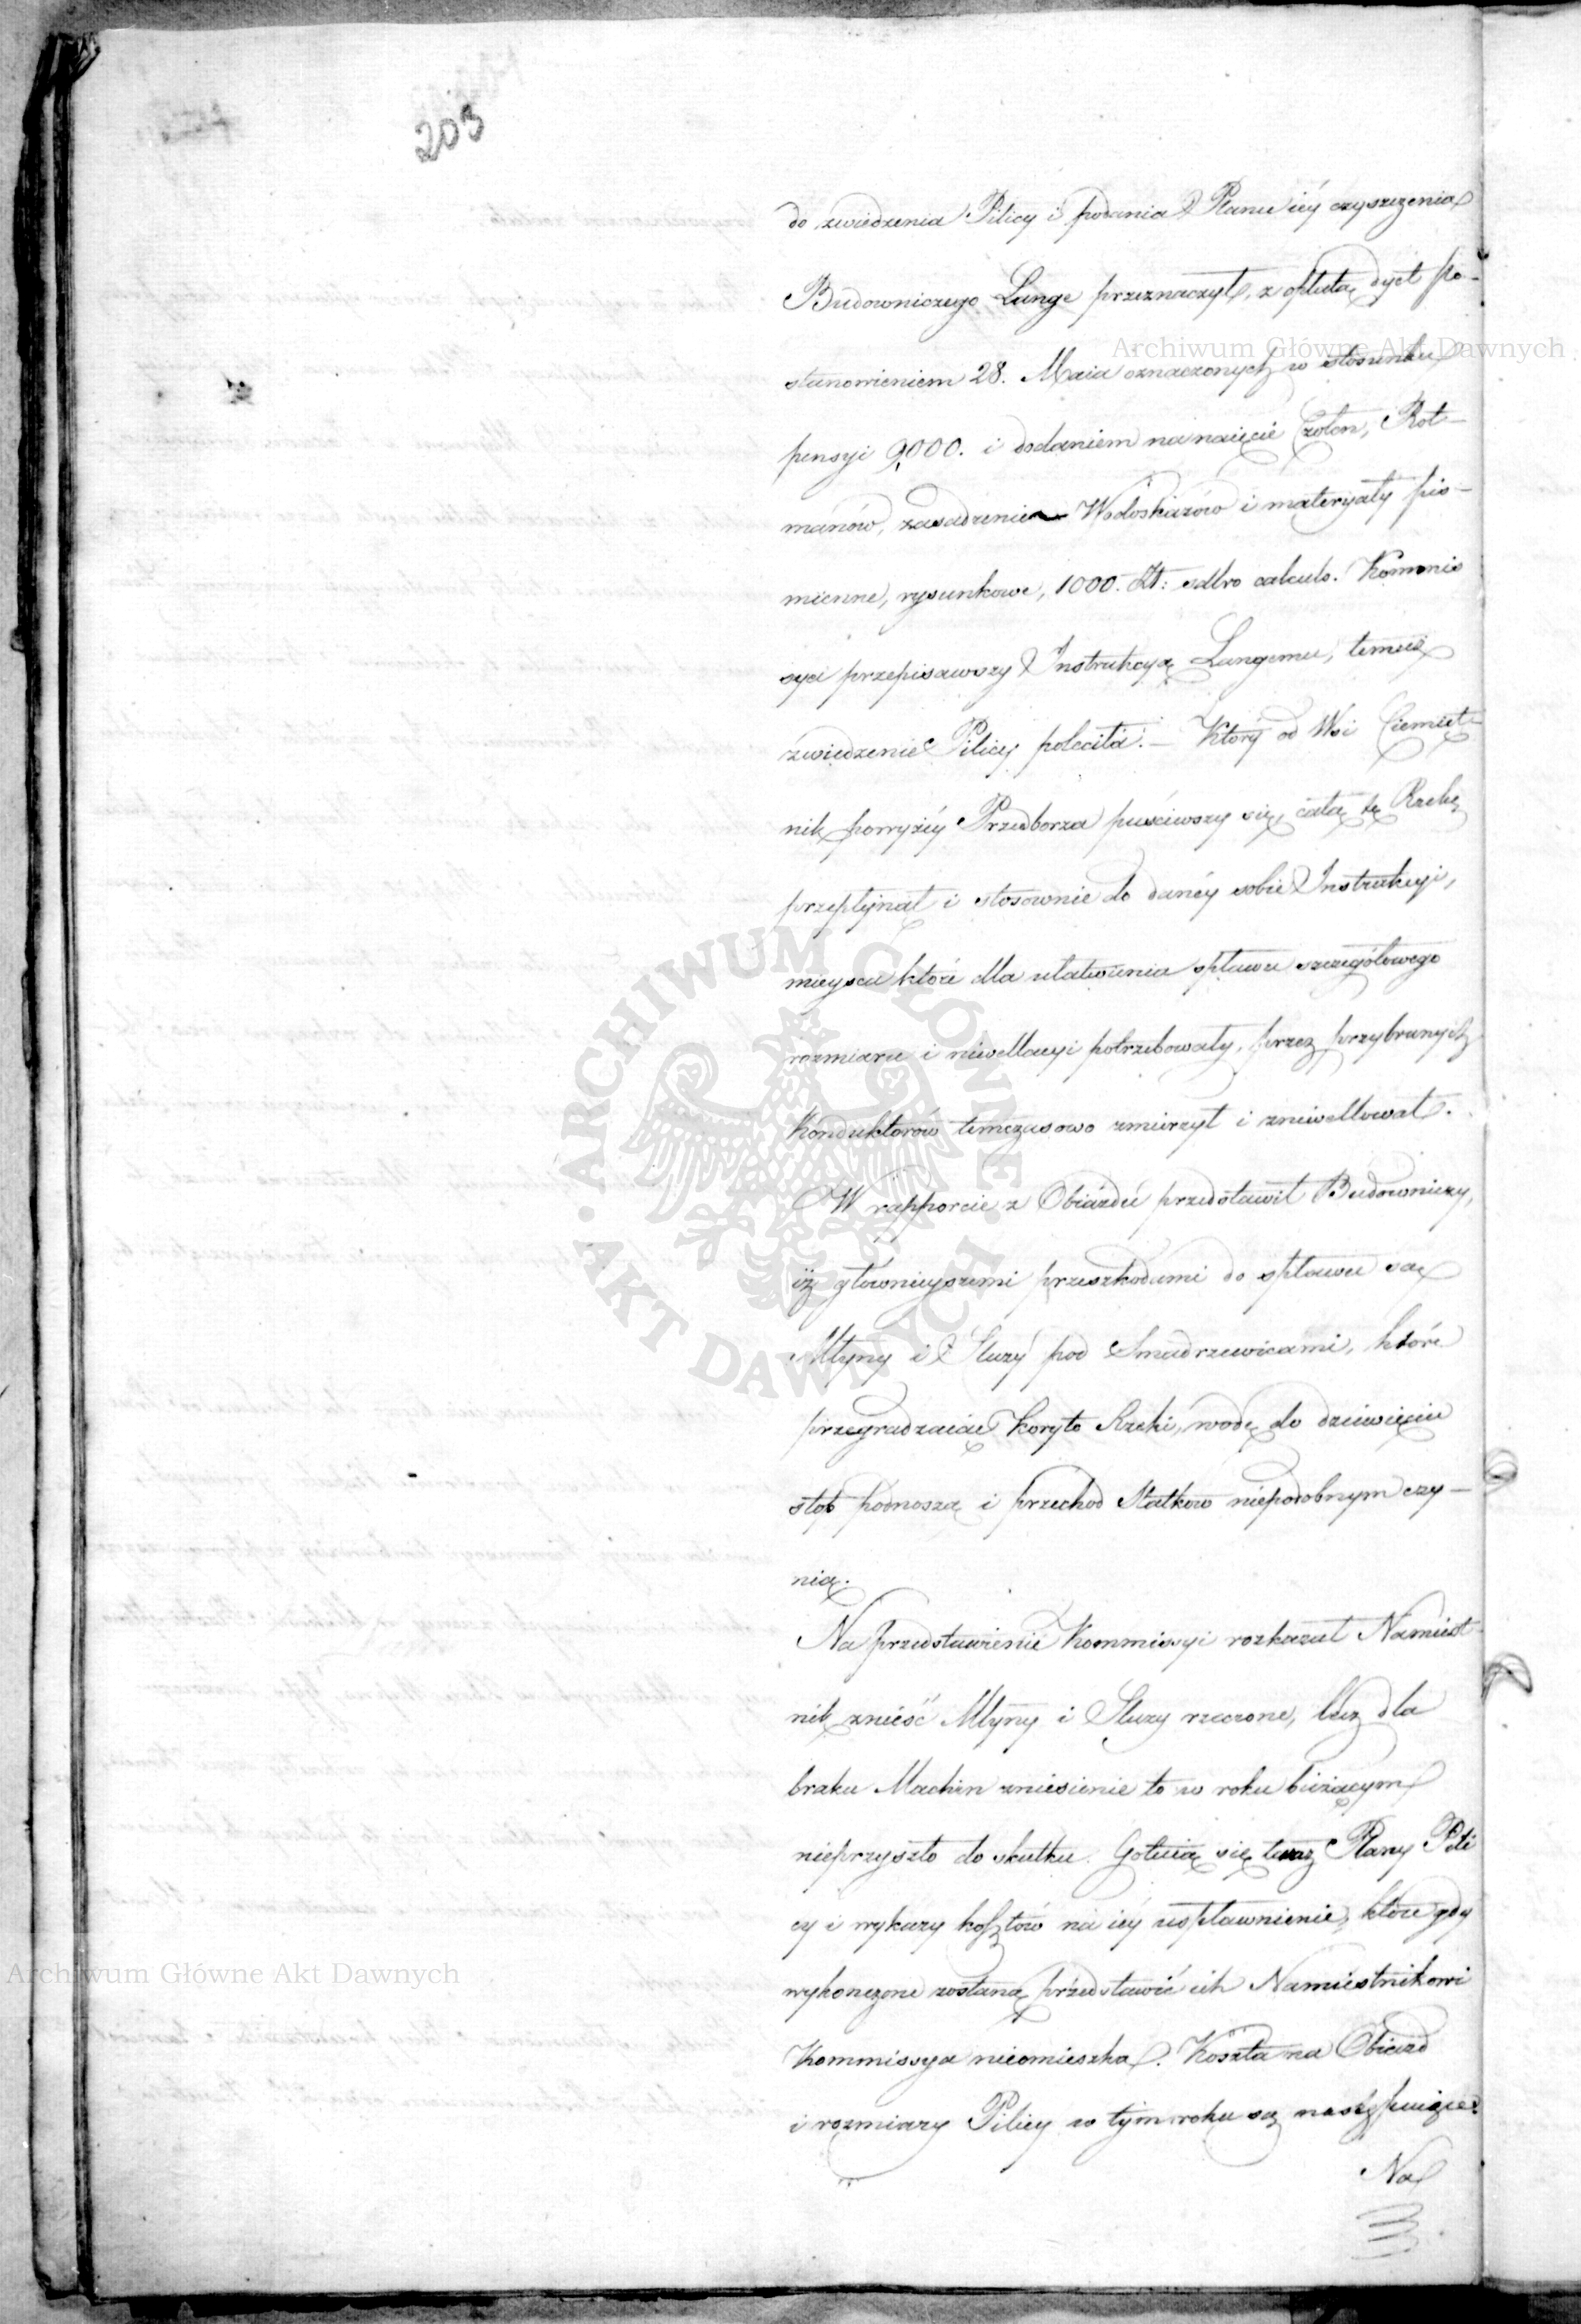 203
do zwiedzenia Pilicy i podania Planu iéy czyszczenia
Budowniczego Lange przeznaczył, z opłatą dyet po-
Archiwum Główne Akt Dawnych
stanowieniem 28. Maia oznaczonych w stosunku
pensyi 9000. i dodaniem na naięcie Czołen, Rot-
manów, zasadzenie Wodoskazów i materyały piś-
mienne, rysunkowe, 1000. Zł: salvo calculo. Kommis
sya przepisawszy Instrukcyą Langemu, temuż
zwiedzenie Pilicy poleciła. – Który od Wsi Ciemięt-
nik powyżéy Przedborza puściwszy się, całą tę Rzekę
przepłynął i stosownie do danéy sobie Instrukcyi,
mieysca które dla ułatwienia spławu szczegółowego
rozmiaru i niwellacyi potrzebowały, przez przybranych
Konduktorów temczasowo zmierzył i zniwellował.
W rapporcie z Obiazdu przedstawił Budowniczy,
iż główneyszemi przeszkodami do spławu są
Młyny i Sluzy pod Smardzewicami, które
przegradzaiąc Koryto Rzeki, wodę do dziewięciu
stóp podnoszą i przechod Statków niepodobnym czy-
nią.
Na przedstawienie Kommissyi rozkazał Namiest-
nik znieść Młyny i Sluzy rzeczone, lecz dla
braku Machin zniesienie to w roku bieżącym
nieprzyszło do skutku. Gotuią się teraz Plany Pili
cy i wykazy kosztów na iéy uspławnienie, które gdy
Archiwum Główne Akt Dawnych
wykonczone zostaną przedstawić ich Namiestnikowi
Kommissya nieomieszka. Koszta na Obiazd
i rozmiary Pilicy w tym roku są następuiące
Na
ARCHIWUM GŁÓWNE • AKT DAWNYCH •